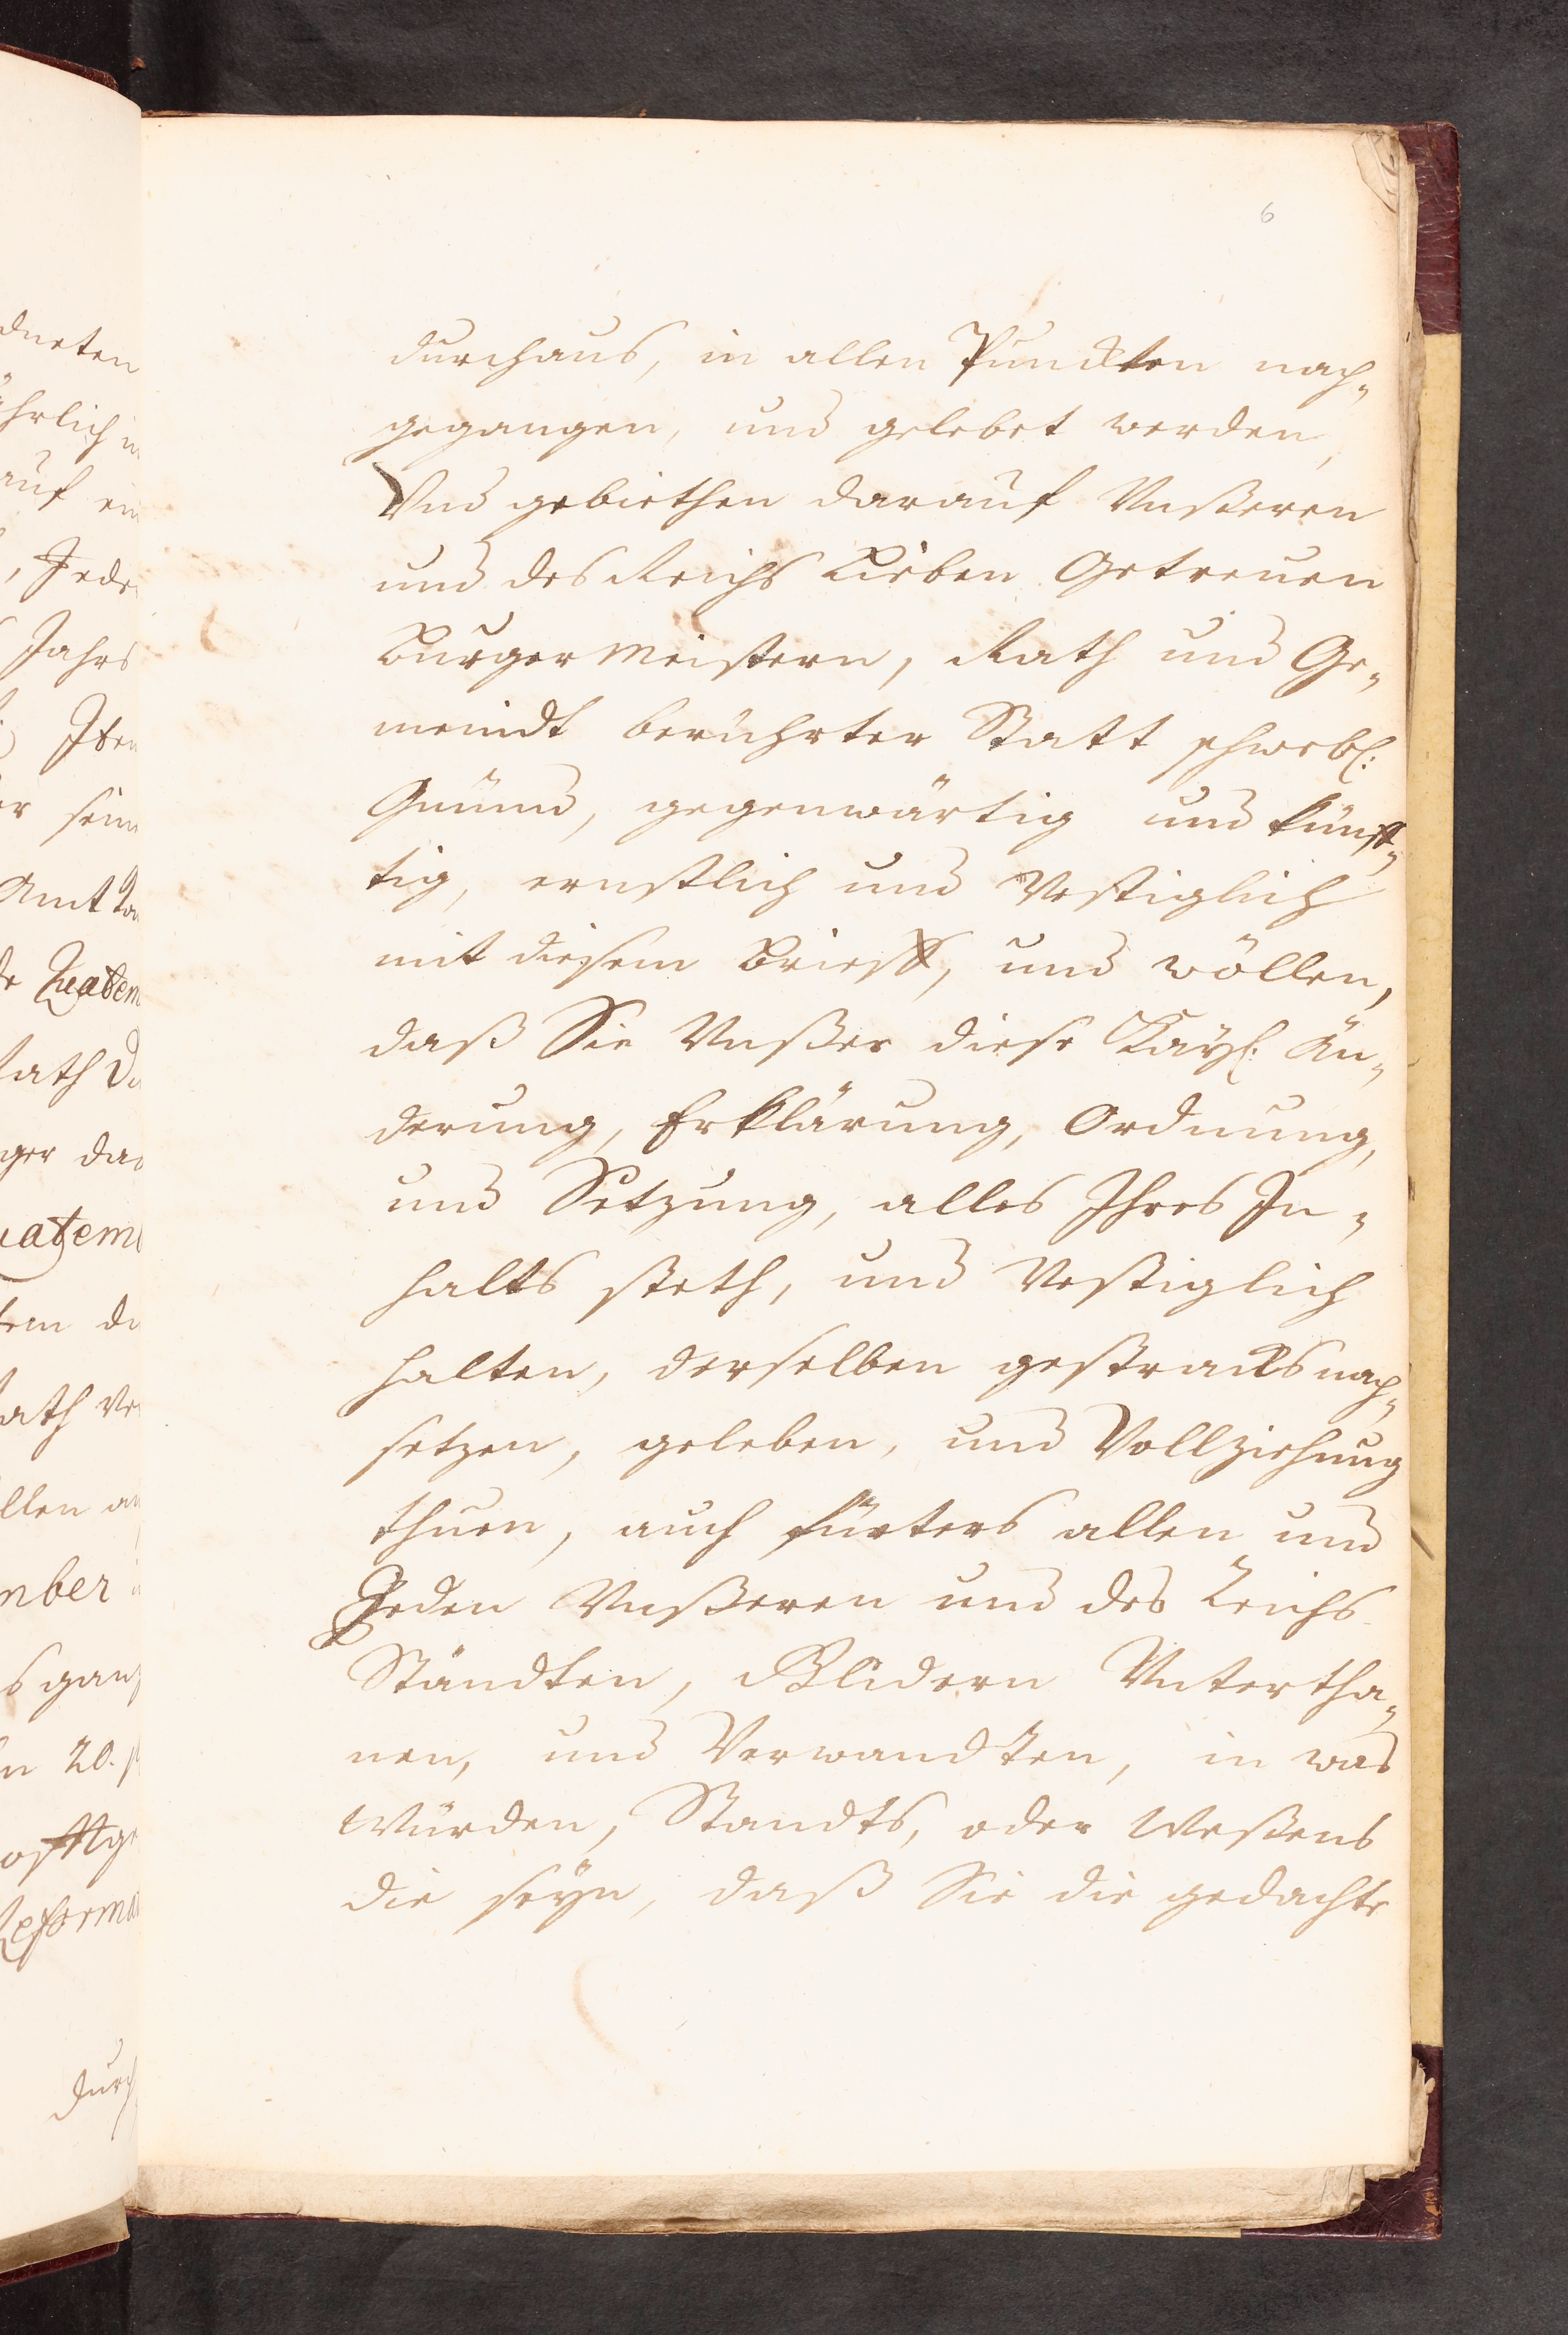 6
durchaus, in allen Puncten nach„
gegangen, und gelebet werden,
Vnd gebiethen darauf Vnßeren
und des Reichs Lieben Getreuen
Burgermeistern, Rath und Ge„
meindt berührter Statt schwebl:
Gmünd, gegenwärtig und künff„
tig, ernstlich und Vestiglich
mit diesem Brieff, und wöllen,
daß Sie Vnßer diese Kayl: Än„
derung, Erklärung, Ordnung,
und Setzung, alles Ihres In„
halts steth, und Vestiglich
halten, derselben gestracks nach„
setzen, geleben, und Vollziehung
thuen, auch fürters allen und
Jeden Vnßeren und des Reichs
Ständten, Glidern Vntertha„
nen, und Verwandten, in was
Würden, Standts, oder Weßens
die seyn, daß Sie die gedachte